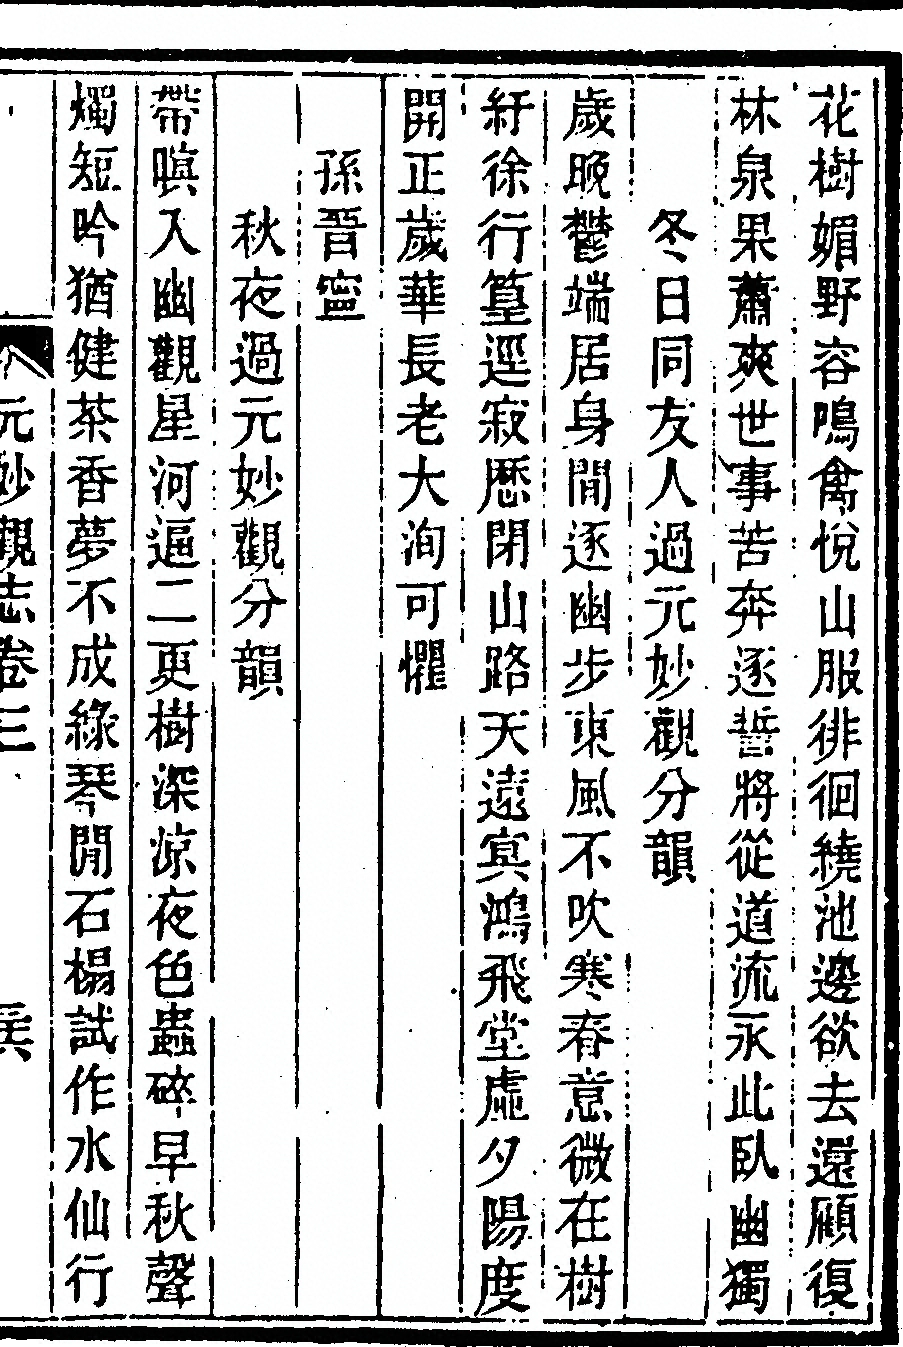 花樹媚野容鳴禽悅山服徘徊繞池邊欲去還顧復
林泉果蕭爽世事苦奔逐誓將從道流永此臥幽獨
冬日同友人過元妙觀分韻
歲晚鬱端居身閒逐幽步東風不吹寒春意微在樹
紆徐行篁逕寂歷閉山路天遠寘鴻飛堂虛夕陽度
開正歲華長老大洵可懼
孫晉寧
秋夜過元妙觀分韻
帶暝入幽觀星河逼二更樹深涼夜色蟲碎早秋聲
燭短吟猶健茶香夢不成綠琴閒石榻試作水仙行
元妙觀志卷三